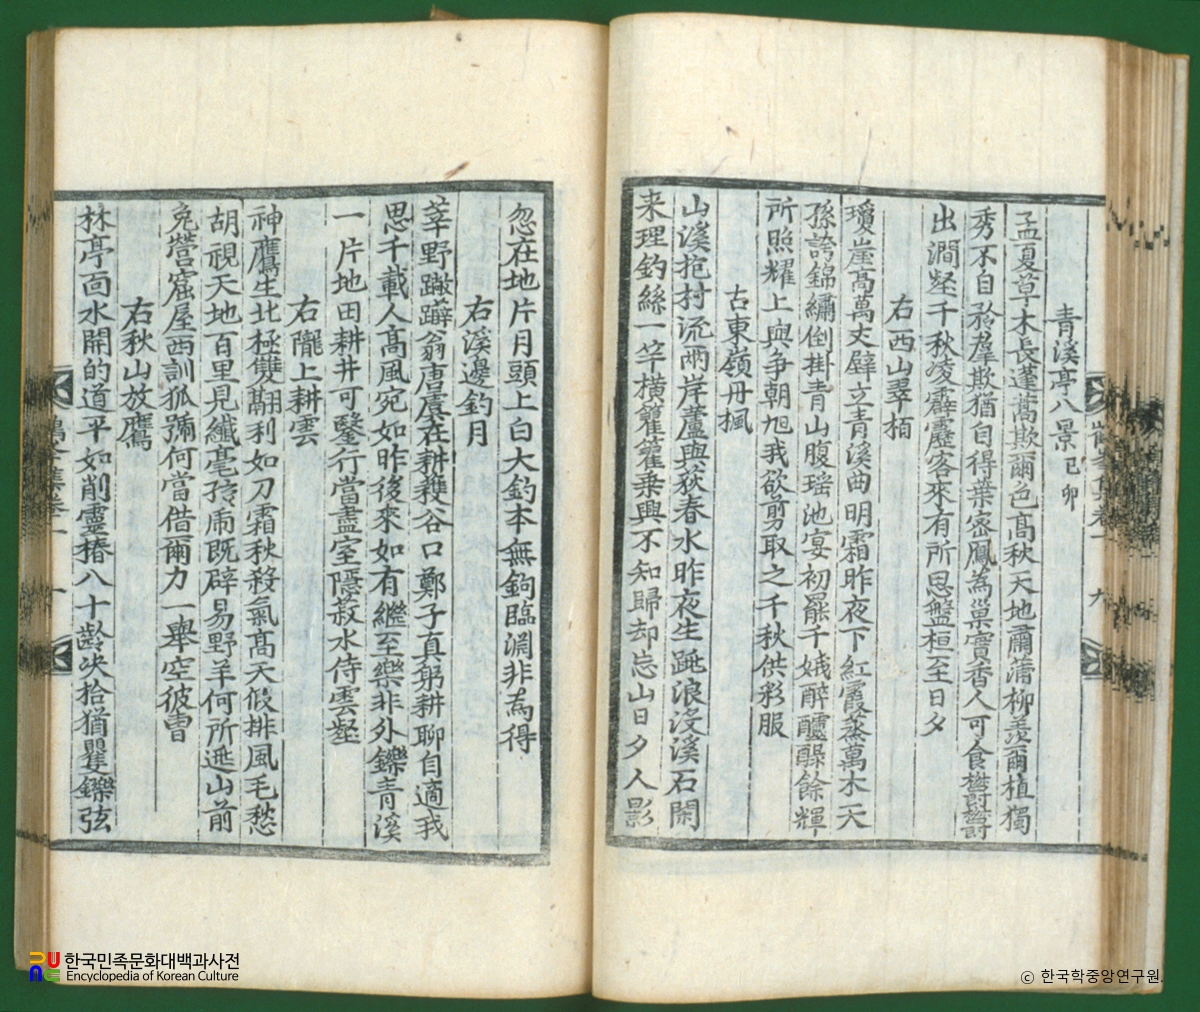 青溪亭八景 己卯
孟夏草木長蓬蒿欺爾色高秋天地肅蒲柳羨爾植獨
秀不自矜羣欺猶自得葉密鳳為巢實香人可食欝欝
出澗壑千秋凌霹靂客來有所思盤桓至日夕
右西山翠栢
瓊崖高萬丈壁立青溪曲明霜昨夜下紅霞蒸萬木天
孫誇錦繡倒掛青山腹瑶池宴初罷千娥醉醽醁餘輝
所照耀上與争朝旭我欲剪取之千秋供彩服
右東嶺丹楓
山溪抱村流兩岸蘆與荻春水昨夜生跳浪沒溪石閑
来理釣絲一竿橫籊籊乗興不知歸却忘山日夕人影
忽在地片月頭上白大釣本無鉤臨淵非為得
右溪邊釣月
莘野躐躃翁唐虞在耕穫谷口鄭子真躬耕聊自適我
思千載人高風宛如昨後來如有繼至樂非外鑠青溪
一片地田耕井可鑿行當盡室隱菽水侍雲壑
右隴上耕雲
神鷹生北極雙翮利如刀霜秋殺氣高天假排風毛愁
胡視天地百里見纖毫狞乕既辟易野羊何所逃山前
兎營窟屋西訓狐彌何當借爾力一舉空彼曺
右秋山放鷹
林亭面水開的道平如削靈椿八十齡决拾猶矍鑠弦
九
十
한국민족문화대백과사전
Encyclopedia of Korean Culture
ⓒ 한국학중앙연구원